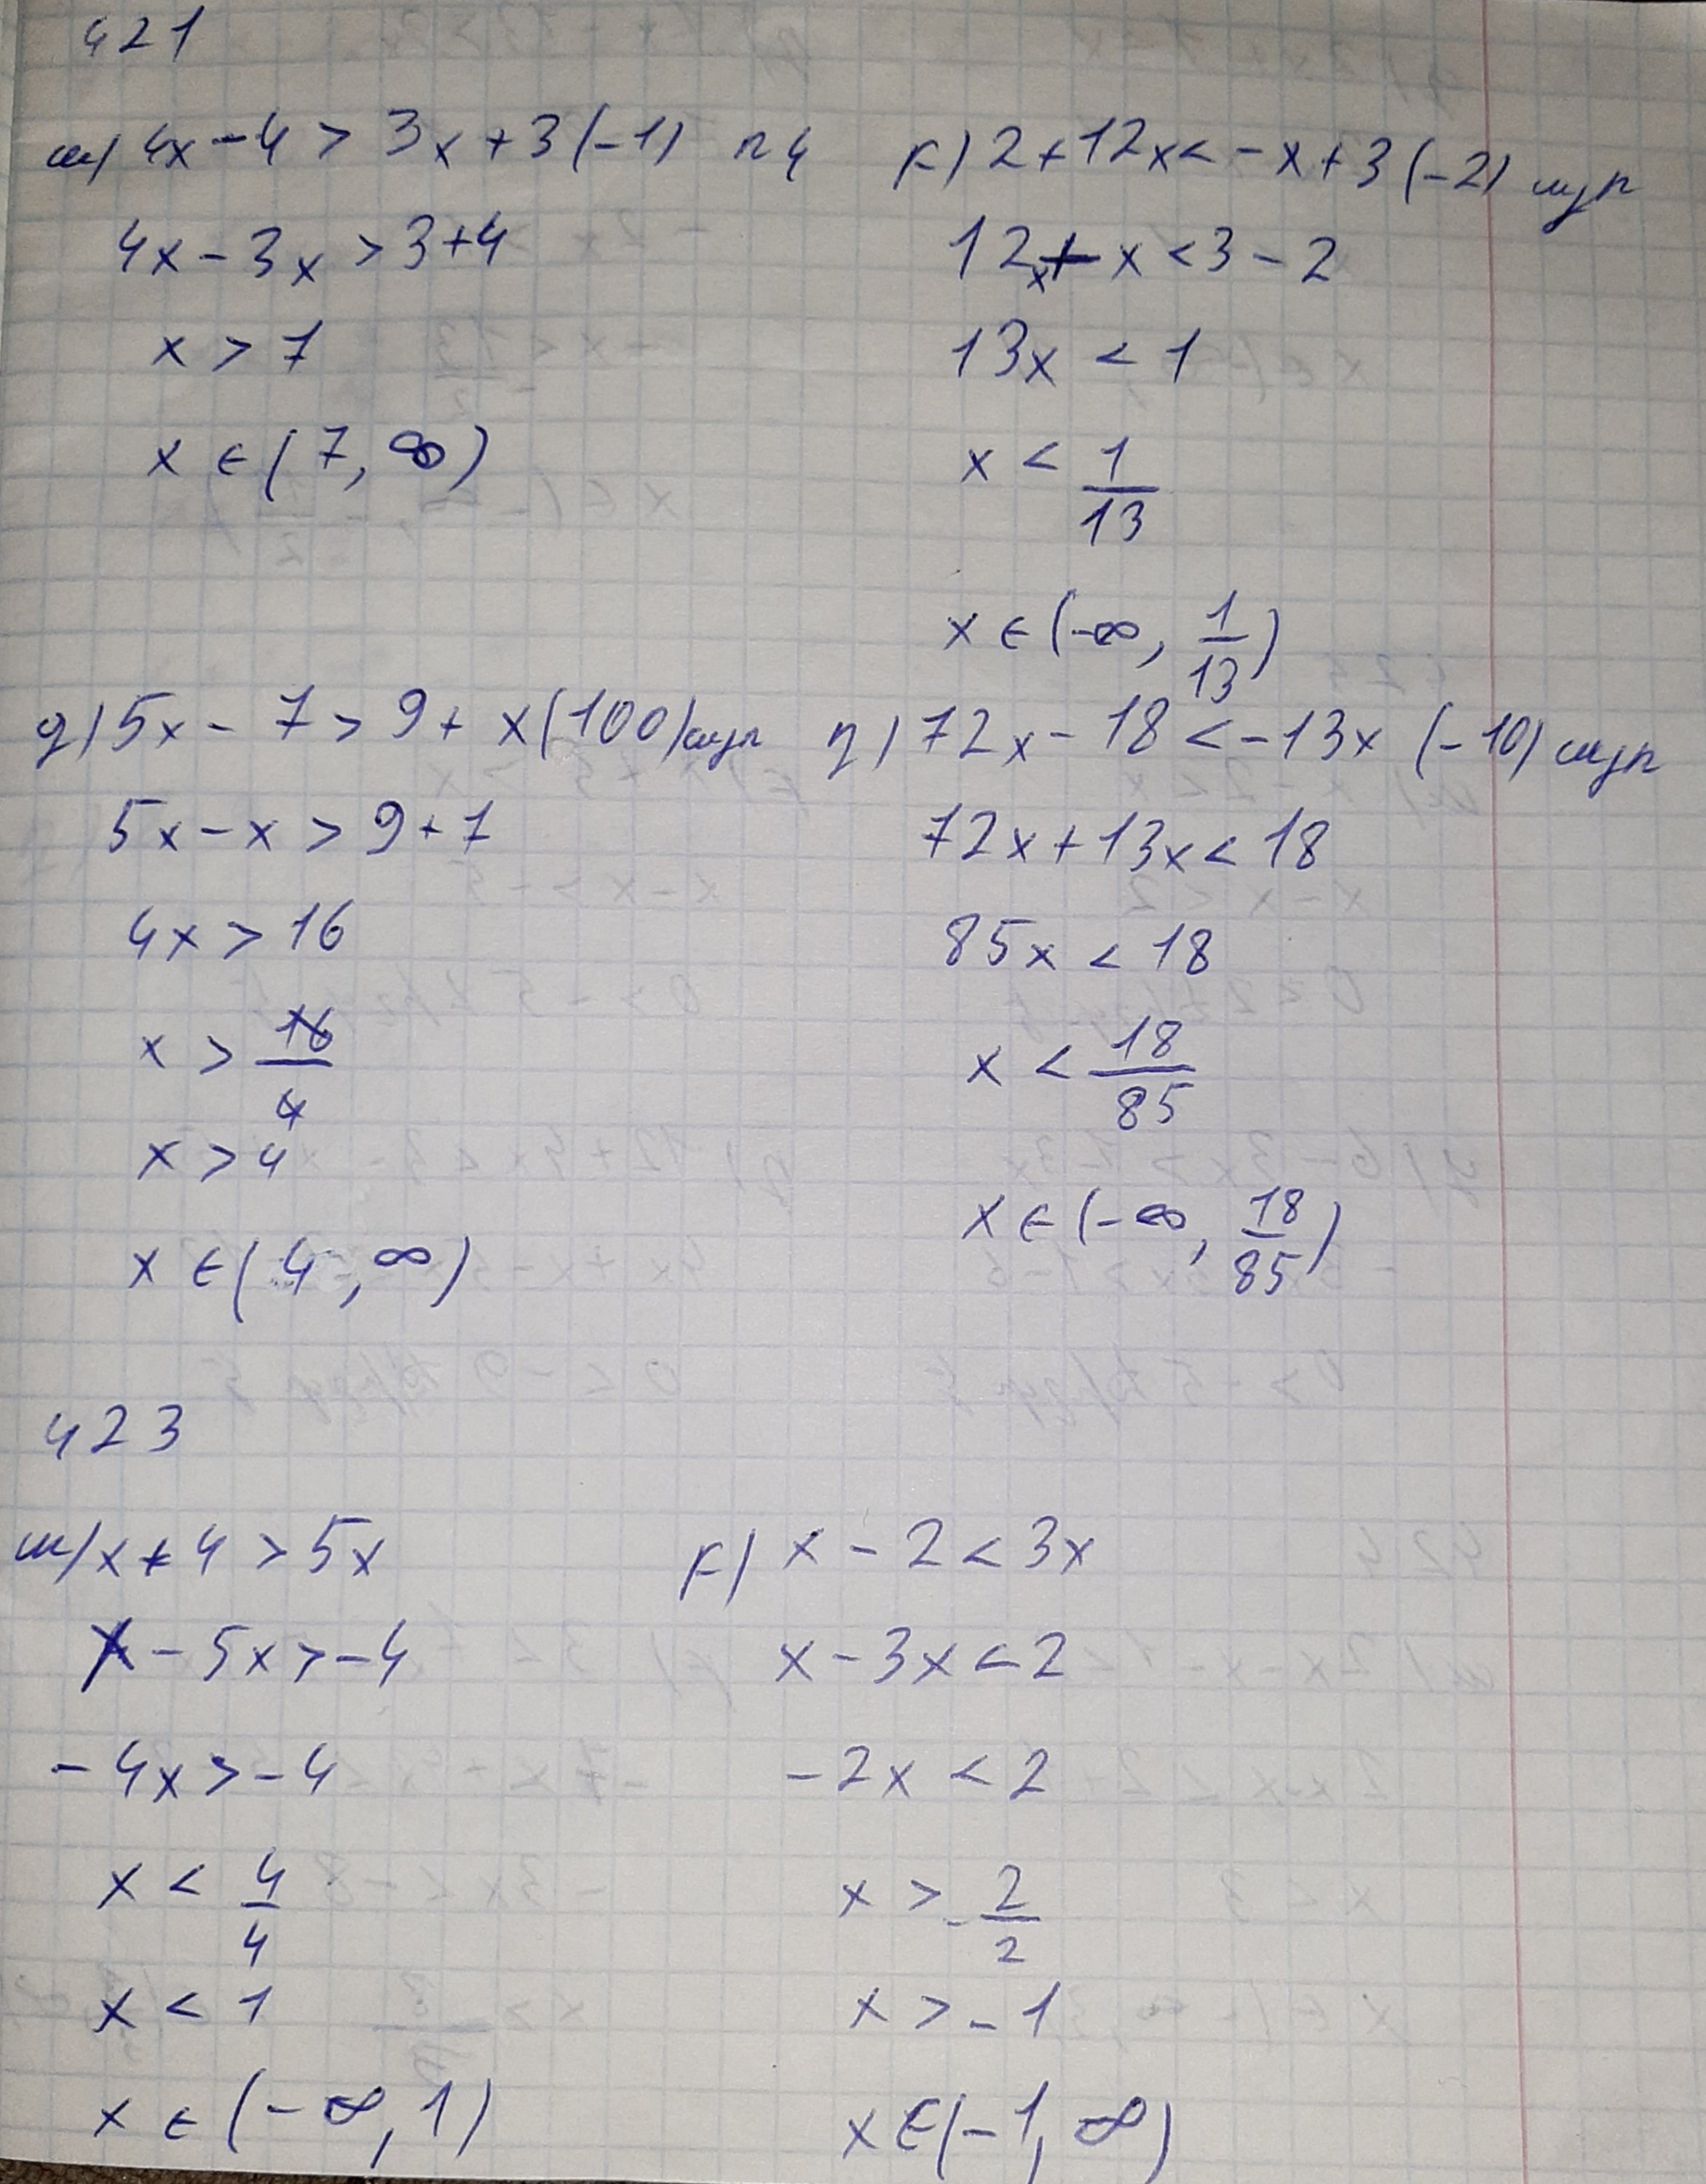 421
ա) 4x - 4 > 3x + 3 (-1) ոչ
4x - 3x > 3 + 4
x > 7
x ∈ (7, ∞)
բ) 2 + 12x < -x + 3 (-2) այո
12x + x < 3 - 2
13x < 1
x < 1/13
x ∈ (-∞, 1/13)
գ) 5x - 7 > 9 + x (100) այո
5x - x > 9 + 7
4x > 16
x > 16/4
x > 4
x ∈ (4, ∞)
դ) 72x - 18 < -13x (-10) այո
72x + 13x < 18
85x < 18
x < 18/85
x ∈ (-∞, 18/85)
423
ա) x + 4 > 5x
x - 5x > -4
-4x > -4
x < 4/4
x < 1
x ∈ (-∞, 1)
բ) x - 2 < 3x
x - 3x < 2
-2x < 2
x > -2/2
x > -1
x ∈ (-1, ∞)